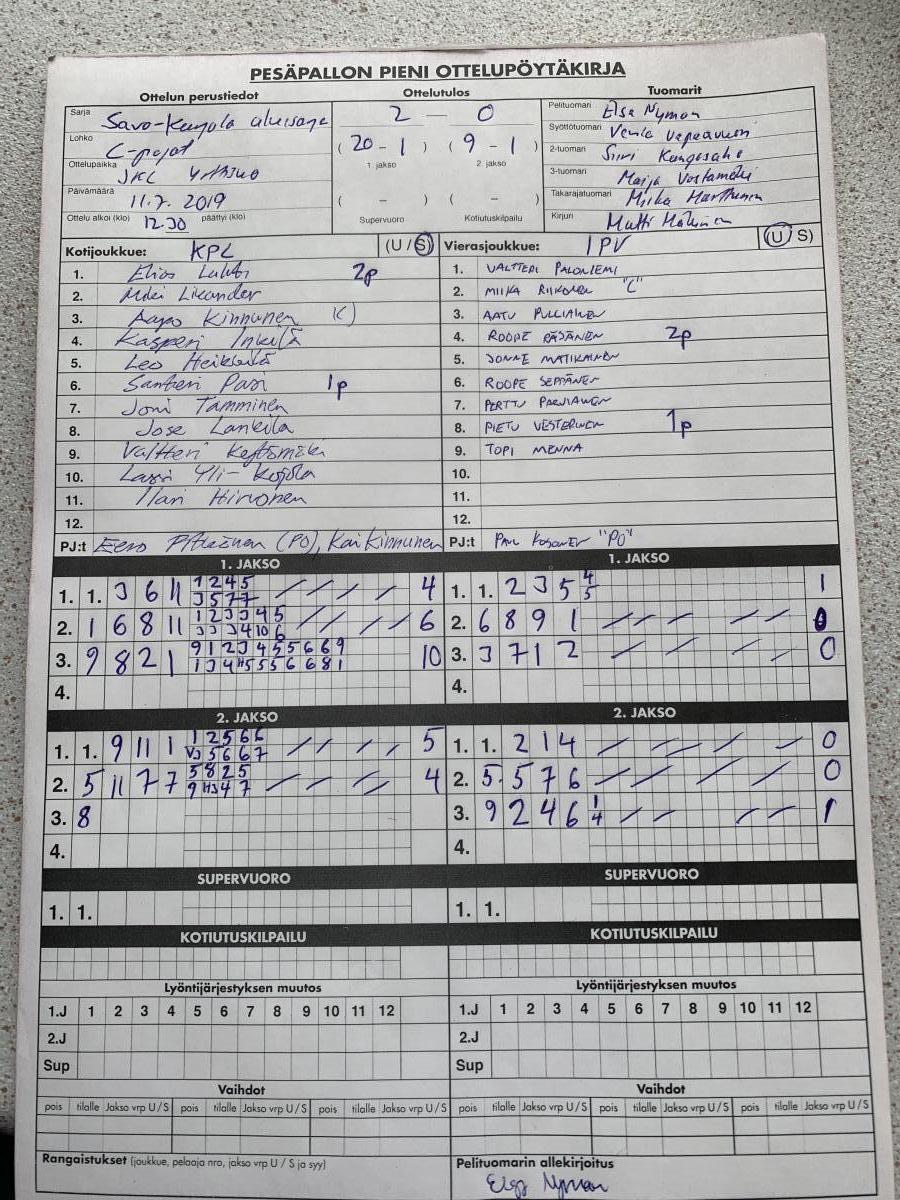 PESÄPALLON PIENI OTTELUPÖYTÄKIRJA
Ottelun perustiedot
Sarja
Lohko
C-pojat
Ottelupaikka
JKL
Päivämäärä
11.7. 2019
Ottelu alkoi (klo) 12.30 päättyi (klo)
Ottelutulos
2 – 0
( 20 - 1 ) ( 9 - 1 )
1. jakso 2. jakso
( – ) ( – )
Supervuoro Kotiutuskilpailu
Tuomarit
Pelituomari Elsa Nyman
Syöttötuomari Venla
2-tuomari Siiri
3-tuomari Maija
Takarajatuomari Miika
Kirjuri Matti
Kotijoukkue: KPL (U / S)
1. Elias Lahti 2p
2. Likander
3. Aapo Kinnunen K)
4. Kasperi Inkilä
5. Leo Heikkilä
6. Santeri Pasi 1p
7. Joni Tamminen
8. Jose Lankila
9. Valtteri
10. Lassi Yli-Kojola
11. Ilari Hirvonen
12.
PJ:t Eero (PO), Kai Kinnunen
Vierasjoukkue: IPV (U / S)
1. VALTTERI PALONIEMI
2. MIIKA RIIKONEN "C"
3. AATU PULLIAINEN
4. ROOPE RÄSÄNEN 2p
5. JONNE MATIKAINEN
6. ROOPE SEPPÄNEN
7. PERTTU PARVIAINEN
8. PIETU VESTERINEN 1p
9. TOPI MENNA
10.
11.
12.
PJ:t "PO"
1. JAKSO
1. 1. 3 6 11 1 2 4 5 4
3 5 7 7
2. 1 6 8 11 1 2 3 3 4 5 6
3 3 3 4 10 6
3. 9 8 2 1 9 1 2 3 4 5 5 6 6 9 10
1 3 4 11 5 5 5 6 6 8 1
4.
1. JAKSO
1. 1. 2 3 5 4 1
5
2. 6 8 9 1 0
3. 3 7 1 2 0
4.
2. JAKSO
1. 1. 9 11 1 1 2 5 6 6 5
V3 5 6 6 7
2. 5 11 7 7 5 8 2 5 4
9 11 3 4 7
3. 8
4.
2. JAKSO
1. 1. 2 1 4 0
2. 5. 5 7 6 0
3. 9 2 4 6 1 1
4
4.
SUPERVUORO
1. 1.
SUPERVUORO
1. 1.
KOTIUTUSKILPAILU
KOTIUTUSKILPAILU
Lyöntijärjestyksen muutos
1.J 1 2 3 4 5 6 7 8 9 10 11 12
2.J
Sup
Lyöntijärjestyksen muutos
1.J 1 2 3 4 5 6 7 8 9 10 11 12
2.J
Sup
Vaihdot
pois tilalle Jakso vrp U / S pois tilalle Jakso vrp U / S pois tilalle Jakso vrp U / S
Vaihdot
pois tilalle Jakso vrp U / S pois tilalle Jakso vrp U / S pois tilalle Jakso vrp U / S
Rangaistukset (joukkue, pelaaja nro, jakso vrp U / S ja syy)
Pelituomarin allekirjoitus
Elsa Nyman